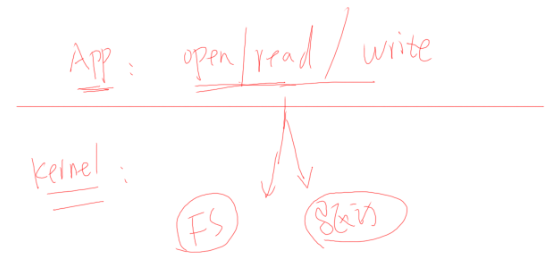 App: open/read/write
Kernel:
FS